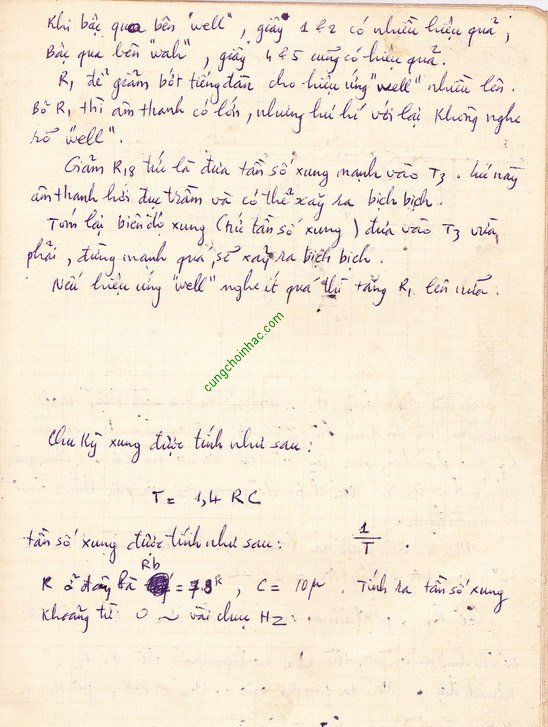 Khi bậc qua bên "well", giây 1 & 2 có nhiều hiệu quả;
Bậc qua bên "wah", giây 4 & 5 cũng có hiệu quả.
R1 để giảm bớt tiếng đàn cho hiệu ứng "well" nhiều lên.
Bỏ R1 thì âm thanh có lớn, nhưng hư hí với lại không nghe
rõ "well".
Giảm R18 tức là đưa tần số xung mạnh vào T3. lúc này
âm thanh hơi đục trầm và có thể xảy ra bịch bịch.
Tóm lại biên độ xung (tức tần số xung) đưa vào T3 vừa
phải, đừng mạnh quá, sẽ xảy ra bịch bịch.
Nếu hiệu ứng "well" nghe ít quá thì tăng R1 lên nữa.
cungchoinhac.com
Chu kỳ xung được tính như sau:
T = 1,4 RC
tần số xung được tính như sau: 1/T.
R ở đây là Rb = 78K, C = 10µ. Tính ra tần số xung
khoảng từ 0 ~ vài chục Hz